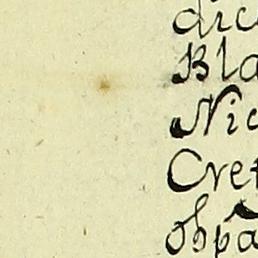 dic
Bla
Nic
Cret
ohpa